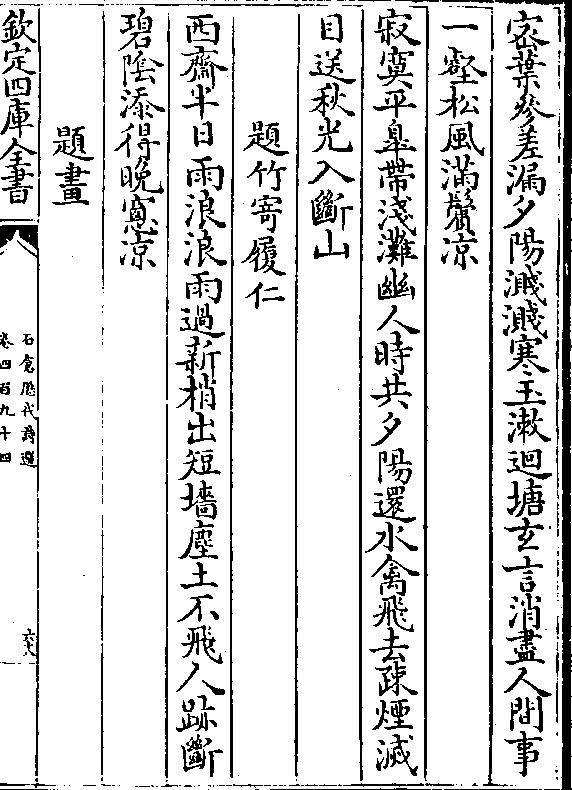 密葉參差漏夕陽濺濺寒玉漱迴塘玄言消盡人間事
一壑松風滿鬢凉
寂寞平皐帶淺灘幽人時共夕陽還水禽飛去疎煙滅
目送秋光入斷山
題竹寄履仁
西齋半日雨浪浪雨過新梢出短墻塵土不飛人跡斷
碧陰添得晚窻凉
題畫
欽定四庫全書
石倉歷代詩選
卷四百九十四
六